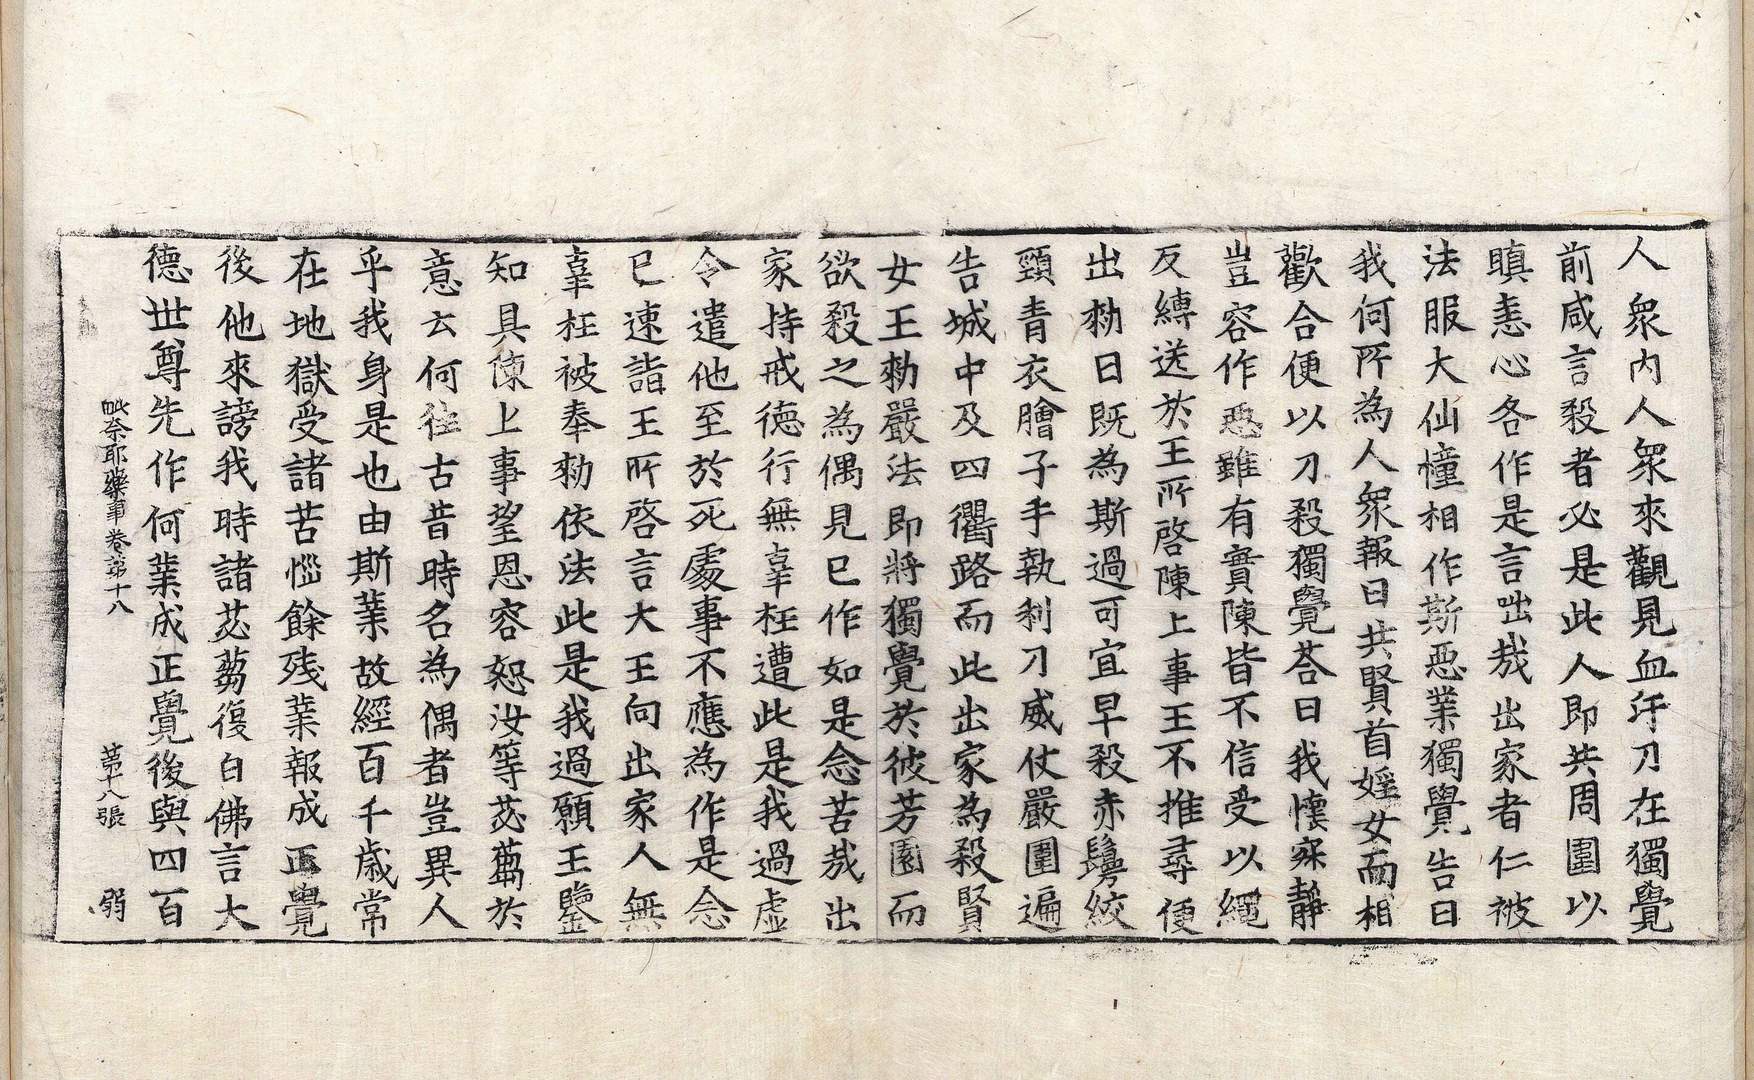 人衆內人衆來觀見血汙刀在獨覺
前咸言殺者必是此人即共周圍以
瞋恚心各作是言咄哉出家者仁被
法服大仙憧相作斯惡業獨覺告曰
我何所為人衆報曰共賢首婬女而相
歡合便以刀殺獨覺荅曰我懐寂靜
豈容作惡雖有實陳皆不信受以繩
反縛送於王所啓陳上事王不推尋便
出勑曰旣為斯過可宜早殺赤鬘絞
頸青衣膾子手執利刀威仗嚴圍遍
告城中及四衢路而此出家為殺賢
女王勑嚴法即將獨覺於彼芳園而
欲殺之為偶見已作如是念苦哉出
家持戒德行無辜枉遭此是我過虛
令遣他至於死處事不應為作是念
已速詣王所啓言大王向出家人無
辜枉被奉勑依法此是我過願王鑒
知具陳上事望恩容恕汝等苾蒭於
意云何徃古昔時名為偶者豈異人
乎我身是也由斯業故經百千歲常
在地獄受諸苦惱餘残業報成正覺
後他來謗我時諸苾蒭復白佛言大
德世尊先作何業成正覺後與四百
毗奈耶藥事卷第十八 第十八張 弱